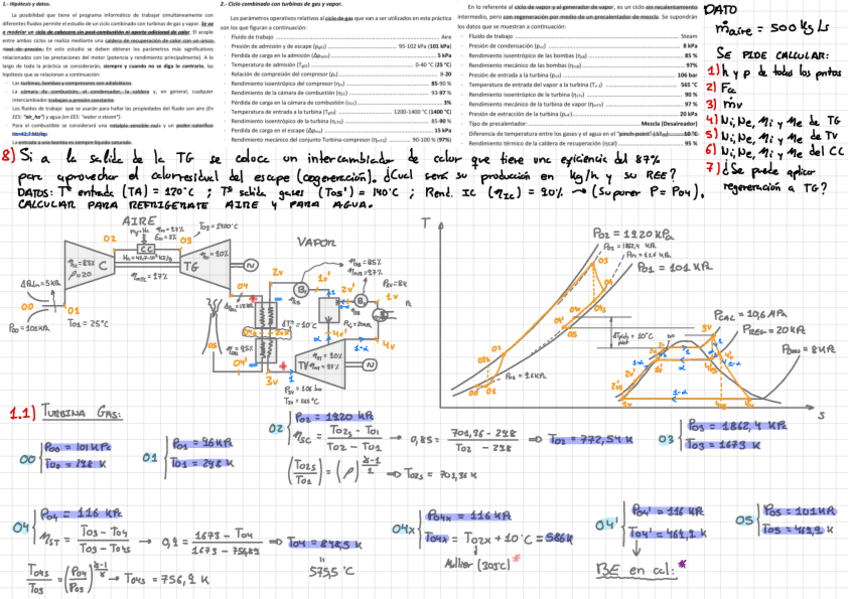 1.- Hipótesis y datos.
La posibilidad que tiene el programa informático de trabajar simultáneamente con
diferentes fluidos permite el estudio de un ciclo combinado con turbinas de gas y vapor. Se va
a modelar un ciclo de cabecera sin post-combustión ni aporte adicional de calor. El acople
entre ambos ciclos se realiza mediante una caldera de recuperación de calor con un único
nivel de presión. En este estudio se deben obtener los parámetros más significativos
relacionados con las prestaciones del motor (potencia y rendimiento principalmente). A lo
largo de toda la práctica se considerarán, siempre y cuando no se diga lo contrario, las
hipótesis que se relacionan a continuación:
- Las turbinas, bombas y compresores son adiabáticos.
- La cámara de combustión, el condensador, la caldera y, en general, cualquier
intercambiador trabajan a presión constante.
- Los fluidos de trabajo que se usarán para hallar las propiedades del fluido son aire (En
EES: "air_ha") y agua (en EES: "water o steam").
- Para el combustible se considerará una entalpía sensible nula y un poder calorífico
Hc=42,7 MJ/kg.
- La entrada a una bomba es siempre líquido saturado.
2.- Ciclo combinado con turbinas de gas y vapor.
Los parámetros operativos relativos al ciclo de gas que van a ser utilizados en esta práctica
son los que figuran a continuación:
- Fluido de trabajo Aire
- Presión de admisión y de escape (p00) 95-102 kPa (101 kPa)
- Perdida de carga en la admisión (Δpadm) 5 kPa
- Temperatura de admisión (T00) 0-40 °C (25 °C)
- Relación de compresión del compresor (rc) 8-20
- Rendimiento isentrópico del compresor 85-90 %
- Rendimiento de la cámara de combustión 93-97 %
- Pérdida de carga en la cámara de combustión 3%
- Temperatura entrada a la turbina 1200-1400 °C (1400 °C)
- Rendimiento isoentrópico de la turbina 85-90 %
- Perdida de carga en el escape 15 kPa
- Rendimiento mecánico del conjunto Turbina-compresor 90-100 % (97%)
En lo referente al ciclo de vapor y al generador de vapor, es un ciclo sin recalentamiento
intermedio, pero con regeneración por medio de un precalentador de mezcla. Se supondrán
los datos que se muestran a continuación:
- Fluido de trabajo Steam
- Presión de condensación 8 kPa
- Rendimiento isoentrópico de las bombas 85 %
- Rendimiento mecánico de las bombas 97%
- Presión de entrada a la turbina 106 bar
- Temperatura de entrada del vapor a la turbina 565 °C
- Rendimiento isentrópico de la turbina 90 %
- Rendimiento mecánico de la turbina de vapor 97 %
- Presión de extracción de la turbina 20 kPa
- Tipo de precalentador Mezcla (Desaireador)
- Diferencia de temperatura entre los gases y el agua en el "pinch-point" 10 °C
- Rendimiento térmico de la caldera de recuperación 95 %
DATO
ṁaire = 500 kg/s
SE PIDE CALCULAR:
1) h y p de todos los puntos
2) Fa
3) ṁv
4) Ni, Ne, ηi y ηe de TG
5) Ni, Ne, ηi y ηe de TV
6) Ni, Ne, ηi y ηe del CC
7) ¿Se puede aplicar
regeneración a TG?
8) Si a la salida de la TG se coloca un intercambiador de calor que tiene una eficiencia del 87%
para aprovechar el calor residual del escape (cogeneración). ¿Cual será su producción en kg/h y su REE?
DATOS: Tª entrada (TA) = 120°C ; Tª salida gases (Tos') = 140°C ; Rend. IC (ηIC) = 90% → (Suponer P = P04).
CALCULAR PARA REFRIGERANTE AIRE Y PARA AGUA.
AIRE
VAPOR
C
CC
TG
TV
P00 = 101 kPa
T01 = 25°C
ΔT = 10°C
P02 = 1920 kPa
P03 = 1862,4 kPa
P04 = 116 kPa
P01 = 101 kPa
PCAL = 10,6 MPa
PREG = 20 kPa
PCOND = 8 kPa
T
S
1.1) TURBINA GAS:
00 { P00 = 101 kPa
T00 = 298 K
01 { P01 = 96 kPa
T01 = 298 K
02 { P02 = 1920 kPa
ηSC = (T02s - T01) / (T02 - T01) → 0,85 = (701,36 - 298) / (T02 - 298) ⇒ T02 = 772,54 K
(T02s / T01) = (ρ)^((γ-1)/γ) ⇒ T02s = 701,36 K
03 { P03 = 1862,4 kPa
T03 = 1673 K
04 { P04 = 116 kPa
ηST = (T03 - T04) / (T03 - T04s) → 0,9 = (1673 - T04) / (1673 - 756,2) ⇒ T04 = 848,5 K
575,5 °C
T04s / T03 = (P04 / P03)^((γ-1)/γ) → T04s = 756,2 K
04x { P04x = 116 kPa
T04x = T02x + 10°C = 586 K
Mollier (303°C) *
04' { P04' = 116 kPa
T04' = 469,2 K
BE en cal: *
05 { P05 = 101 kPa
T05 = 469,2 K